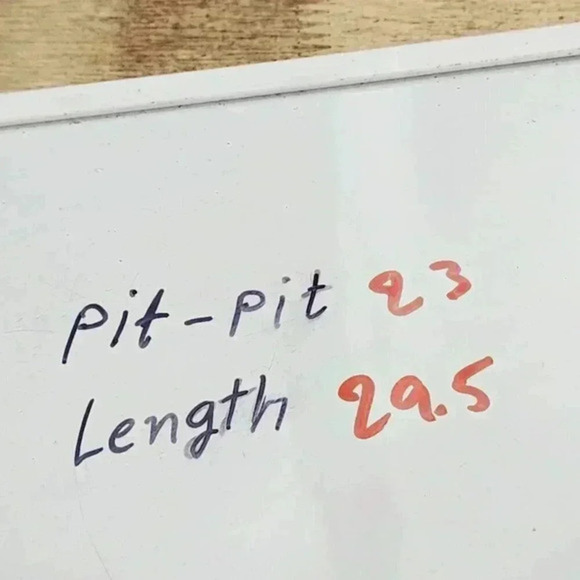 Pit-Pit 23
Length 29.5